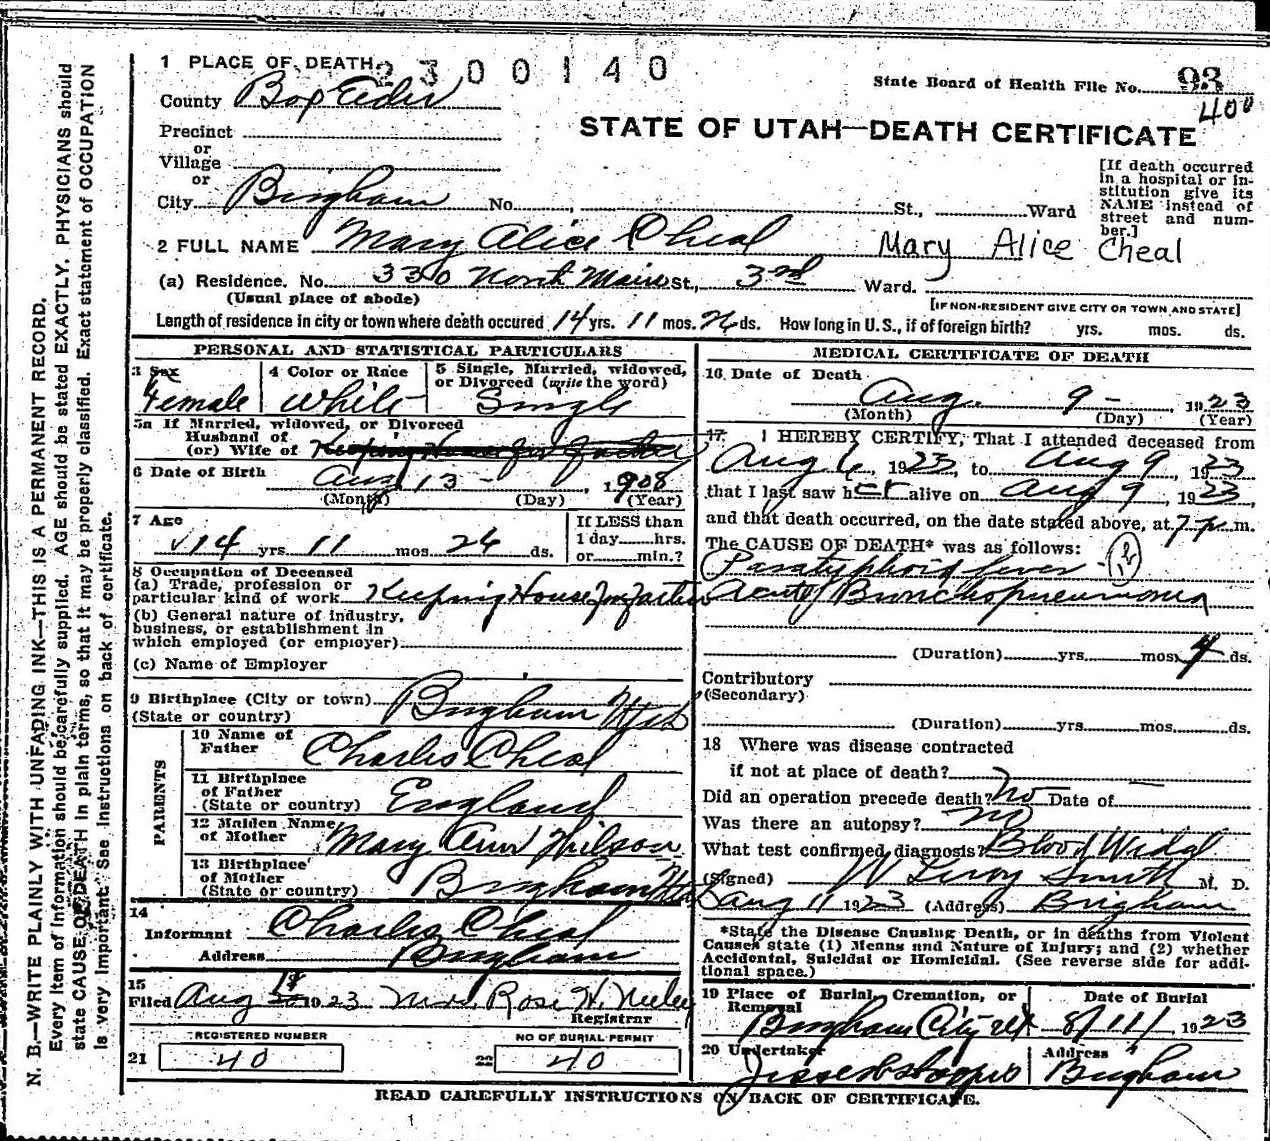 1 PLACE OF DEATH 2300140
State Board of Health File No. 93
400
County Box Elder
STATE OF UTAH—DEATH CERTIFICATE
Precinct
or
Village
or
City Brigham No. , St., Ward
[If death occurred
in a hospital or in-
stitution give its
NAME instead of
street and num-
ber.]
2 FULL NAME Mary Alice Cheal Mary Alice Cheal
(a) Residence. No. 330 North Main St., 3rd Ward.
(Usual place of abode) [IF NON-RESIDENT GIVE CITY OR TOWN AND STATE]
Length of residence in city or town where death occured 14 yrs. 11 mos. 26 ds. How long in U.S., if of foreign birth? yrs. mos. ds.
PERSONAL AND STATISTICAL PARTICULARS
3 Sex 4 Color or Race 5 Single, Married, widowed,
or Divorced (write the word)
Female White Single
5a If Married, widowed, or Divorced
Husband of
(or) Wife of Keeping House for father
6 Date of Birth Aug 13 - , 1908
(Month) (Day) (Year)
7 Age If LESS than
14 yrs 11 mos. 26 ds. 1 day hrs.
or min.?
8 Occupation of Deceased
(a) Trade, profession or
particular kind of work Keeping House For father
(b) General nature of industry,
business, or establishment in
which employed (or employer)
(c) Name of Employer
9 Birthplace (City or town) Brigham Utah
(State or country)
PARENTS
10 Name of
Father Charles Cheal
11 Birthplace
of Father
(State or country) England
12 Maiden Name
of Mother Mary Ann Wilson
13 Birthplace
of Mother
(State or country) Brigham Utah
14
Informant Charles Cheal
Address Brigham
15
Filed Aug 1923 Mrs. Rose H. Neeley
Registrar
REGISTERED NUMBER NO OF BURIAL PERMIT
21 40 22 40
MEDICAL CERTIFICATE OF DEATH
16 Date of Death
Aug. 9 - , 1923
(Month) (Day) (Year)
17 I HEREBY CERTIFY, That I attended deceased from
Aug 6, 1923, to Aug 9, 1923
that I last saw her alive on Aug 9, 1923,
and that death occurred, on the date stated above, at 7 p. m.
The CAUSE OF DEATH* was as follows:
Paratyphoid fever -
Acute Bronchopneumonia
(Duration) yrs. mos. 4 ds.
Contributory
(Secondary)
(Duration) yrs. mos. ds.
18 Where was disease contracted
if not at place of death?
Did an operation precede death? No Date of
Was there an autopsy? No
What test confirmed diagnosis? Blood Widal
(Signed) W Leroy Smith M. D.
Aug 11 1923 (Address) Brigham
*State the Disease Causing Death, or in deaths from Violent
Causes state (1) Means and Nature of Injury; and (2) whether
Accidental, Suicidal or Homicidal. (See reverse side for addi-
tional space.)
19 Place of Burial, Cremation, or
Removal Date of Burial
Brigham City Ut 8/11/ 1923
20 Undertaker Address
Brigham
READ CAREFULLY INSTRUCTIONS ON BACK OF CERTIFICATE.
N. B.—WRITE PLAINLY WITH UNFADING INK—THIS IS A PERMANENT RECORD.
Every item of information should be carefully supplied. AGE should be stated EXACTLY. PHYSICIANS should
state CAUSE OF DEATH in plain terms, so that it may be properly classified. Exact statement of OCCUPATION
is very important. See instructions on back of certificate.